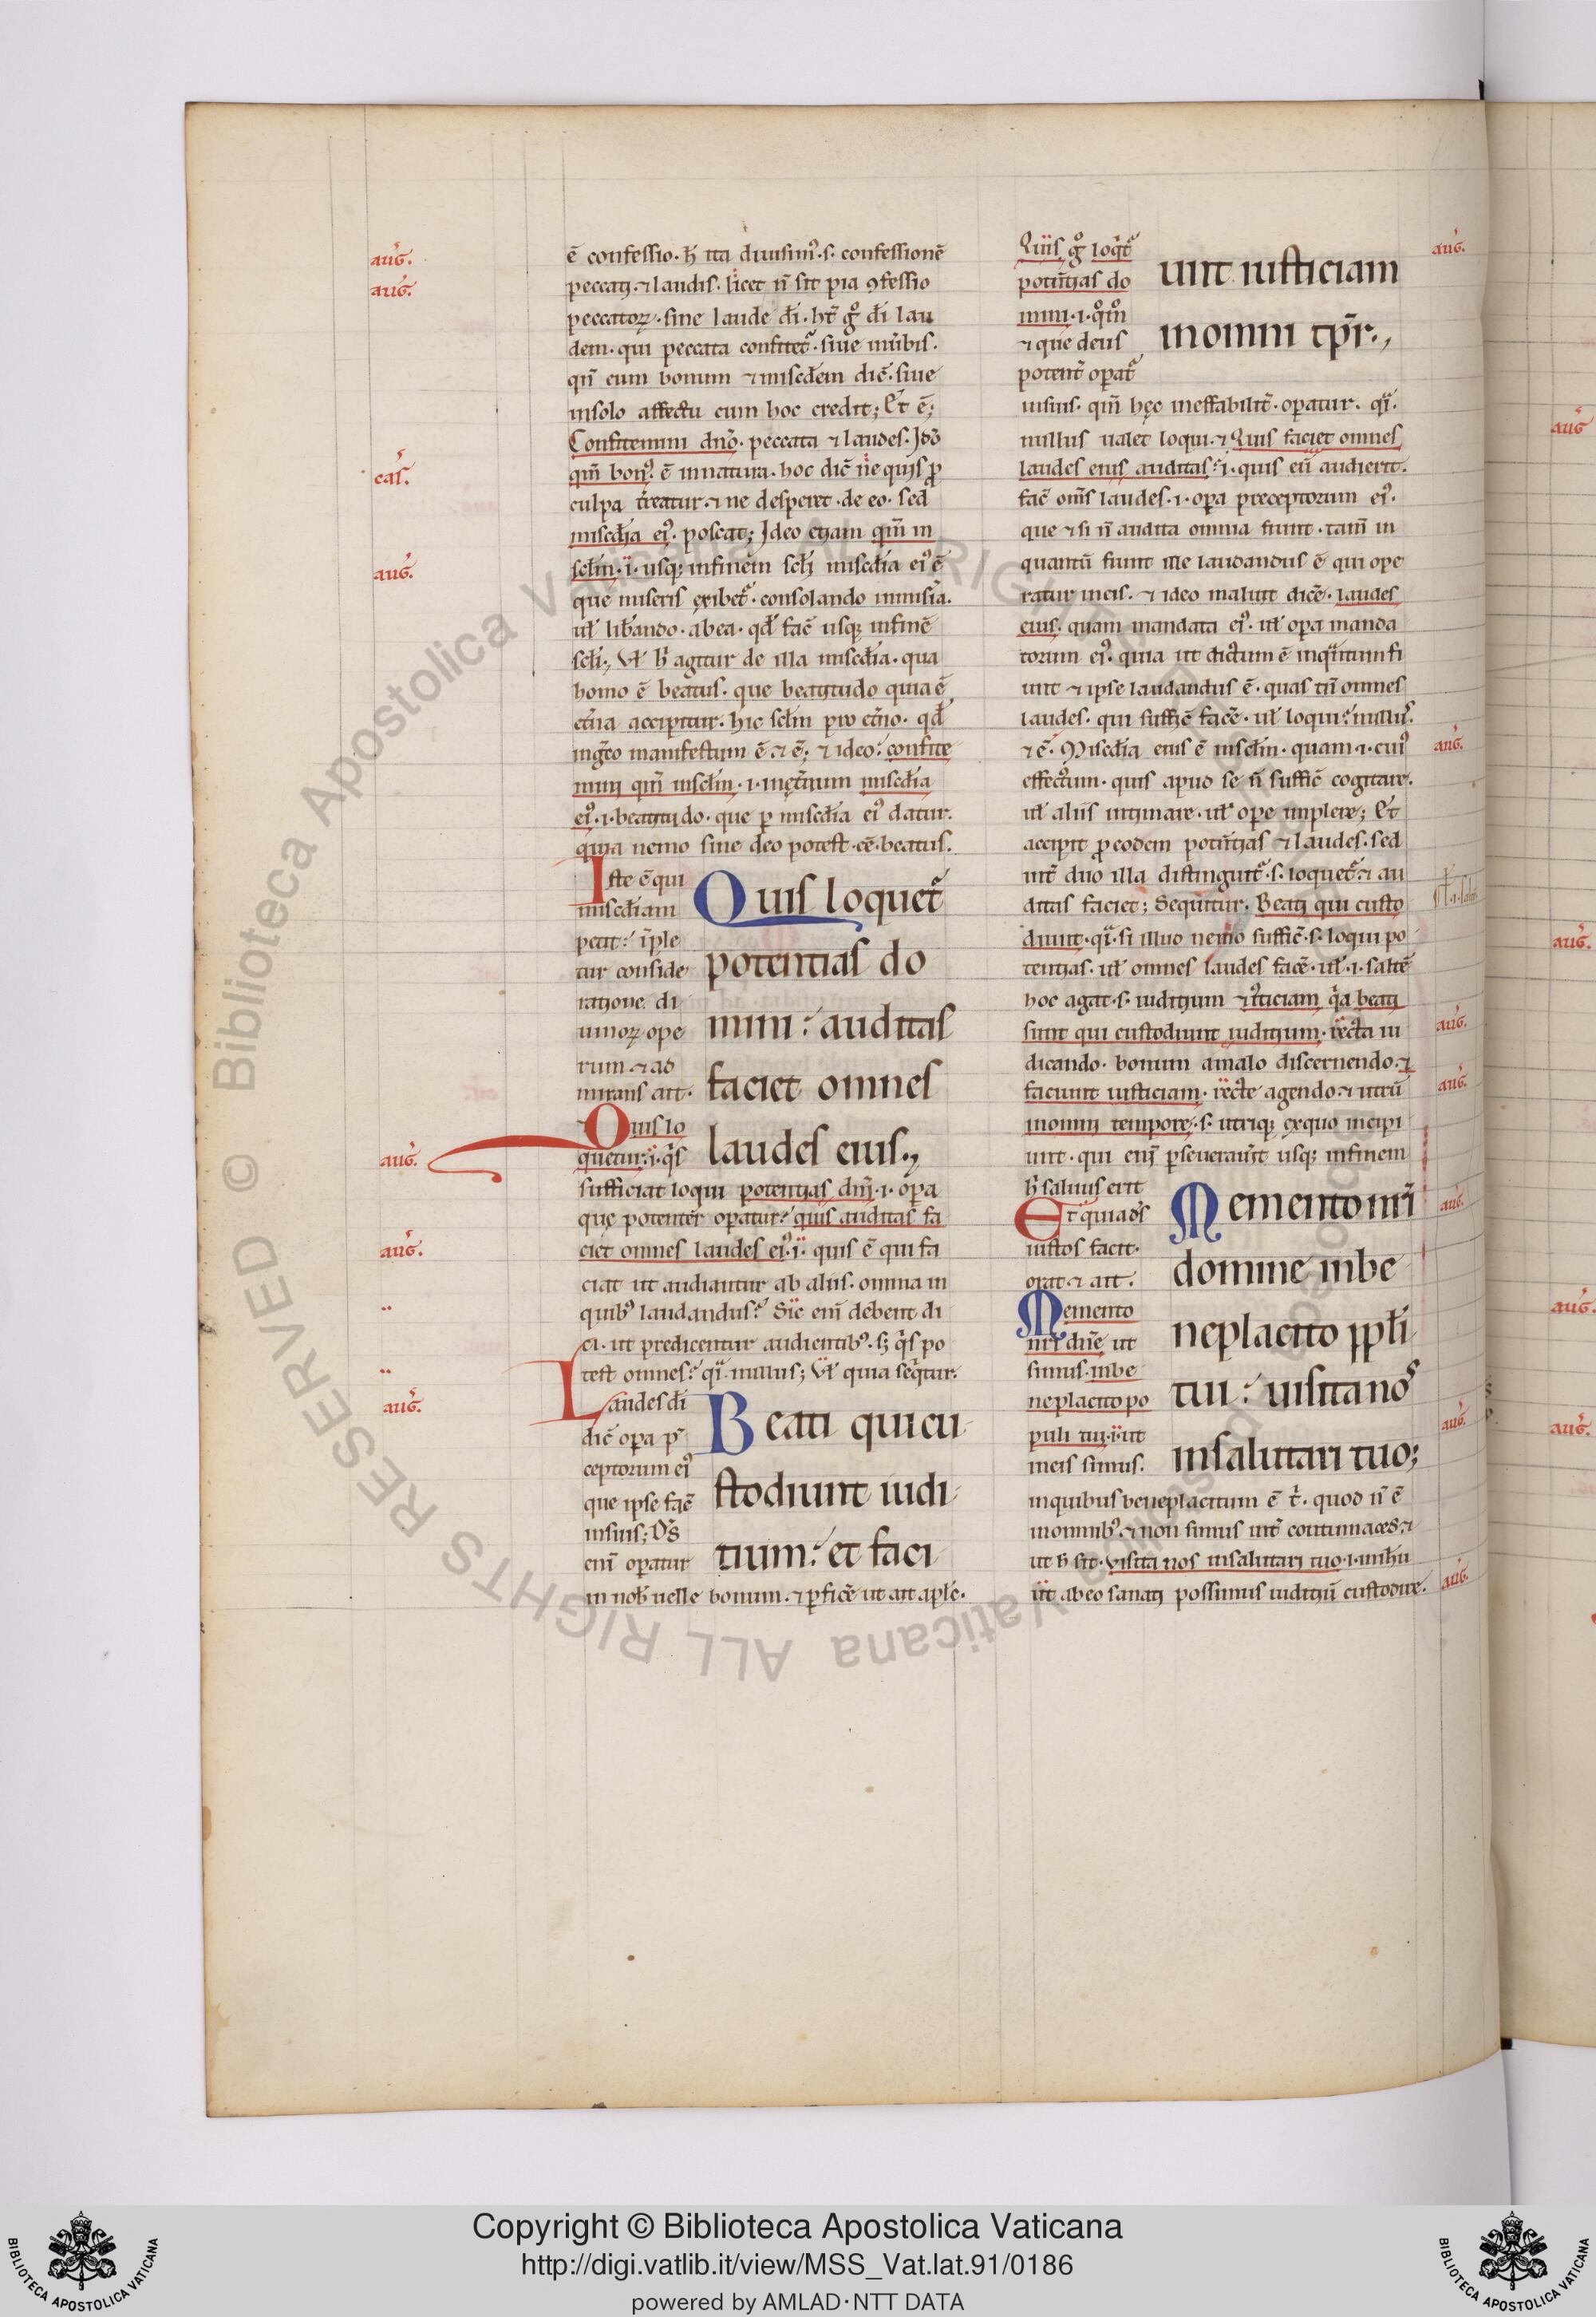 ē confessio. h̄ ita diuisim᷒. s. confessionē
peccati. ⁊ laudis. licet n̄ sit pia ꝯfessio
peccatoꝝ. sine laude dī. ht̄ gͦ dī lau
dem. qui peccata confitet᷑. siue in uerbis.
qn̄ eum bonum ⁊ misc̄dem dic̄. siue
in solo affectu cum hoc credit; Et ē;
Confitemini dn̄o. peccata ⁊ laudes. Ideo
qm̄ bon᷒. ē in natura. hoc dic̄ ne quis ꝓ
culpa t̄reatur. ⁊ ne desperet. de eo. sed
misc̄dia ei᷒. poscat; Ideo etiam qm̄ in
sc̄lm. i. usq; in finem sc̄li misc̄dia ei᷒ ē
que miseris exibet᷑. consolando in miseria.
ul̄ lib̄ando. ab ea. qd̄ fac̄ usq; in finē
sc̄li., Vl̄ h̄ agitur de illa misc̄dia. qua
homo ē beatus. que beatitudo quia ē
et̄na accipitur. hic sc̄lm pro et̄no. qd̄
in greco manifestum ē. ⁊ ē; ⁊ ideo. confite
mini qm̄ in sc̄lm. i. in et̄num misc̄dia
ei᷒. i. beatitudo. que p̱ misc̄dia ei᷒ datur.
quia nemo sine deo potest. ēē. beatus.
Iste ē qui
misc̄diam
petit. īple
tur conside
ratione di
uinoꝝ ope
rum. ⁊ ad
mirans ait.
Quis loquet᷑
potentias do
mini. auditas
faciet omnes
laudes eius.,
Quis lo
quetur. i. qis
sufficiat loqui potentias dnī. i. opera
que potenter operatur. quis auditas fa
ciet omnes laudes ei᷒. i. quis ē qui fa
ciat ut audiantur ab aliis. omnia in
quib᷒ laudandus. Sic enī debent di
ci. ut predicentur audientib᷒. s; qis po
test omnes. qͥ. nullus; Vl̄ quia seqͥtur.
Laudes dī
dic̄ opera p̄
ceptorum ei᷒
que ipse fac̄
in suis; Ds̄
enī operatur
in nob̄ uelle bonum. ⁊ p̱fic̄e ut ait apl̄s.
Beati qui cu
stodiunt iudi
tium. et faci
Quis gͦ loqͥt᷑
potentias do
mini. i. qͦmͦ
⁊ que deus
potent̄ operat᷑
unt iusticiam
in omni tp̄r.,
in suis. qm̄ hęc ineffabilit̄. operatur. qͥ.
nullus ualet loqui. ⁊ Quis faciet omnes
laudes eius auditas. i. quis eū audierit.
fac̄ om̄s laudes. i. opera preceptorum ei᷒.
que ⁊ si n̄ audita omnia fiunt. tam̄ in
quantū fiunt ille laudandus ē qui ope
ratur in eis. ⁊ ideo maluit dic̄e. laudes
eius. quam mandata ei᷒. ul̄ opera manda
torum ei᷒. quia ut dictum ē in qͥntum fi
unt ⁊ ipse laudandus ē. quas tn̄ omnes
laudes. qui suffic̄ fac̄e. ul̄ loqui. null᷒.
⁊ ē. Misc̄dia eius ē in sc̄lm. quam. i. cui᷒
effectum. quis apud se n̄ suffic̄ cogitare.
ul̄ aliis intimare. ul̄ ope implere; Et
accipit ꝓ eodem potentias ⁊ laudes. sed
int̄ duo illa distinguit᷑. s. loquet᷑. ⁊ au
ditas faciet; Sequitur. Beati qui custo
diunt. qͥ. si illud nemo suffic̄. s. loqui po
tentias. ul̄ omnes laudes fac̄e. ul̄. i. saltē
hoc agat. s. iuditium ⁊ i᷒ticiam qͥa beati
sunt qui custodiunt iuditium. recta iu
dicando. bonum a malo discernendo. ⁊
faciunt iusticiam. recte agendo. ⁊ utrū
in omni tempore. s. utrique ex quo incipi
unt. qui enī p̱seuerauit usq; in finem
h̄ saluus erit
Et quia ds̄
iustos facit.
orat. ⁊ ait.
Memento
nri dn̄e ut
simus. in be
neplacito po
puli tui. i. ut
in eis simus.
Memento nrī
domine in be
neplacito ppl̄i
tui. uisita nos
in salutari tuo;
in quibus beneplacitum ē t̄. quod n̄ ē
in omnib᷒. ⁊ non simus int̄ contumaces. ⁊
ut h̄ sit. uisita nos in salutari tuo. i. in ihū
ut ab eo sanati possimus iuditiū custodire.
auḡ.
auḡ.
cas̄.
auḡ.
auḡ.
auḡ.
auḡ.
auḡ.
auḡ.
auḡ.
auḡ.
auḡ.
auḡ.
auḡ.
auḡ
auḡ.
auḡ.
auḡ.
© Biblioteca Apostolica Vaticana ALL RIGHTS RESERVED
Copyright © Biblioteca Apostolica Vaticana
http://digi.vatlib.it/view/MSS_Vat.lat.91/0186
powered by AMLAD·NTT DATA
BIBLIOTECA APOSTOLICA VATICANA
BIBLIOTECA APOSTOLICA VATICANA